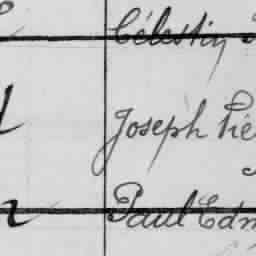 Célestin
Joseph Pie
Paul Edm